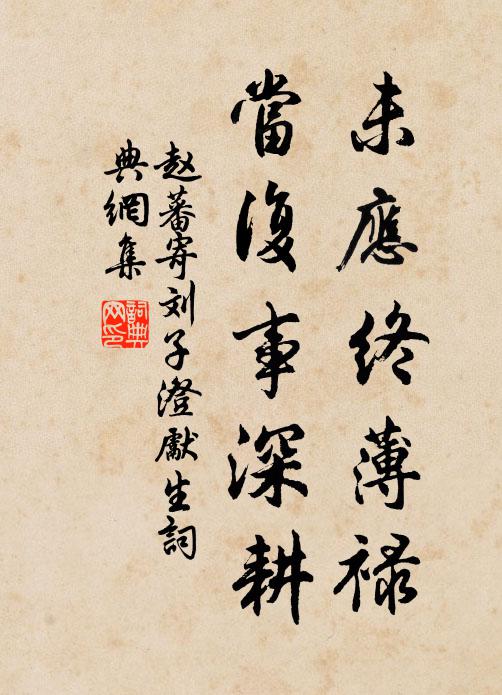 未應終薄祿
當復事深耕
赵蕃寄刘子澄獻生詞
典網集
詞典網印